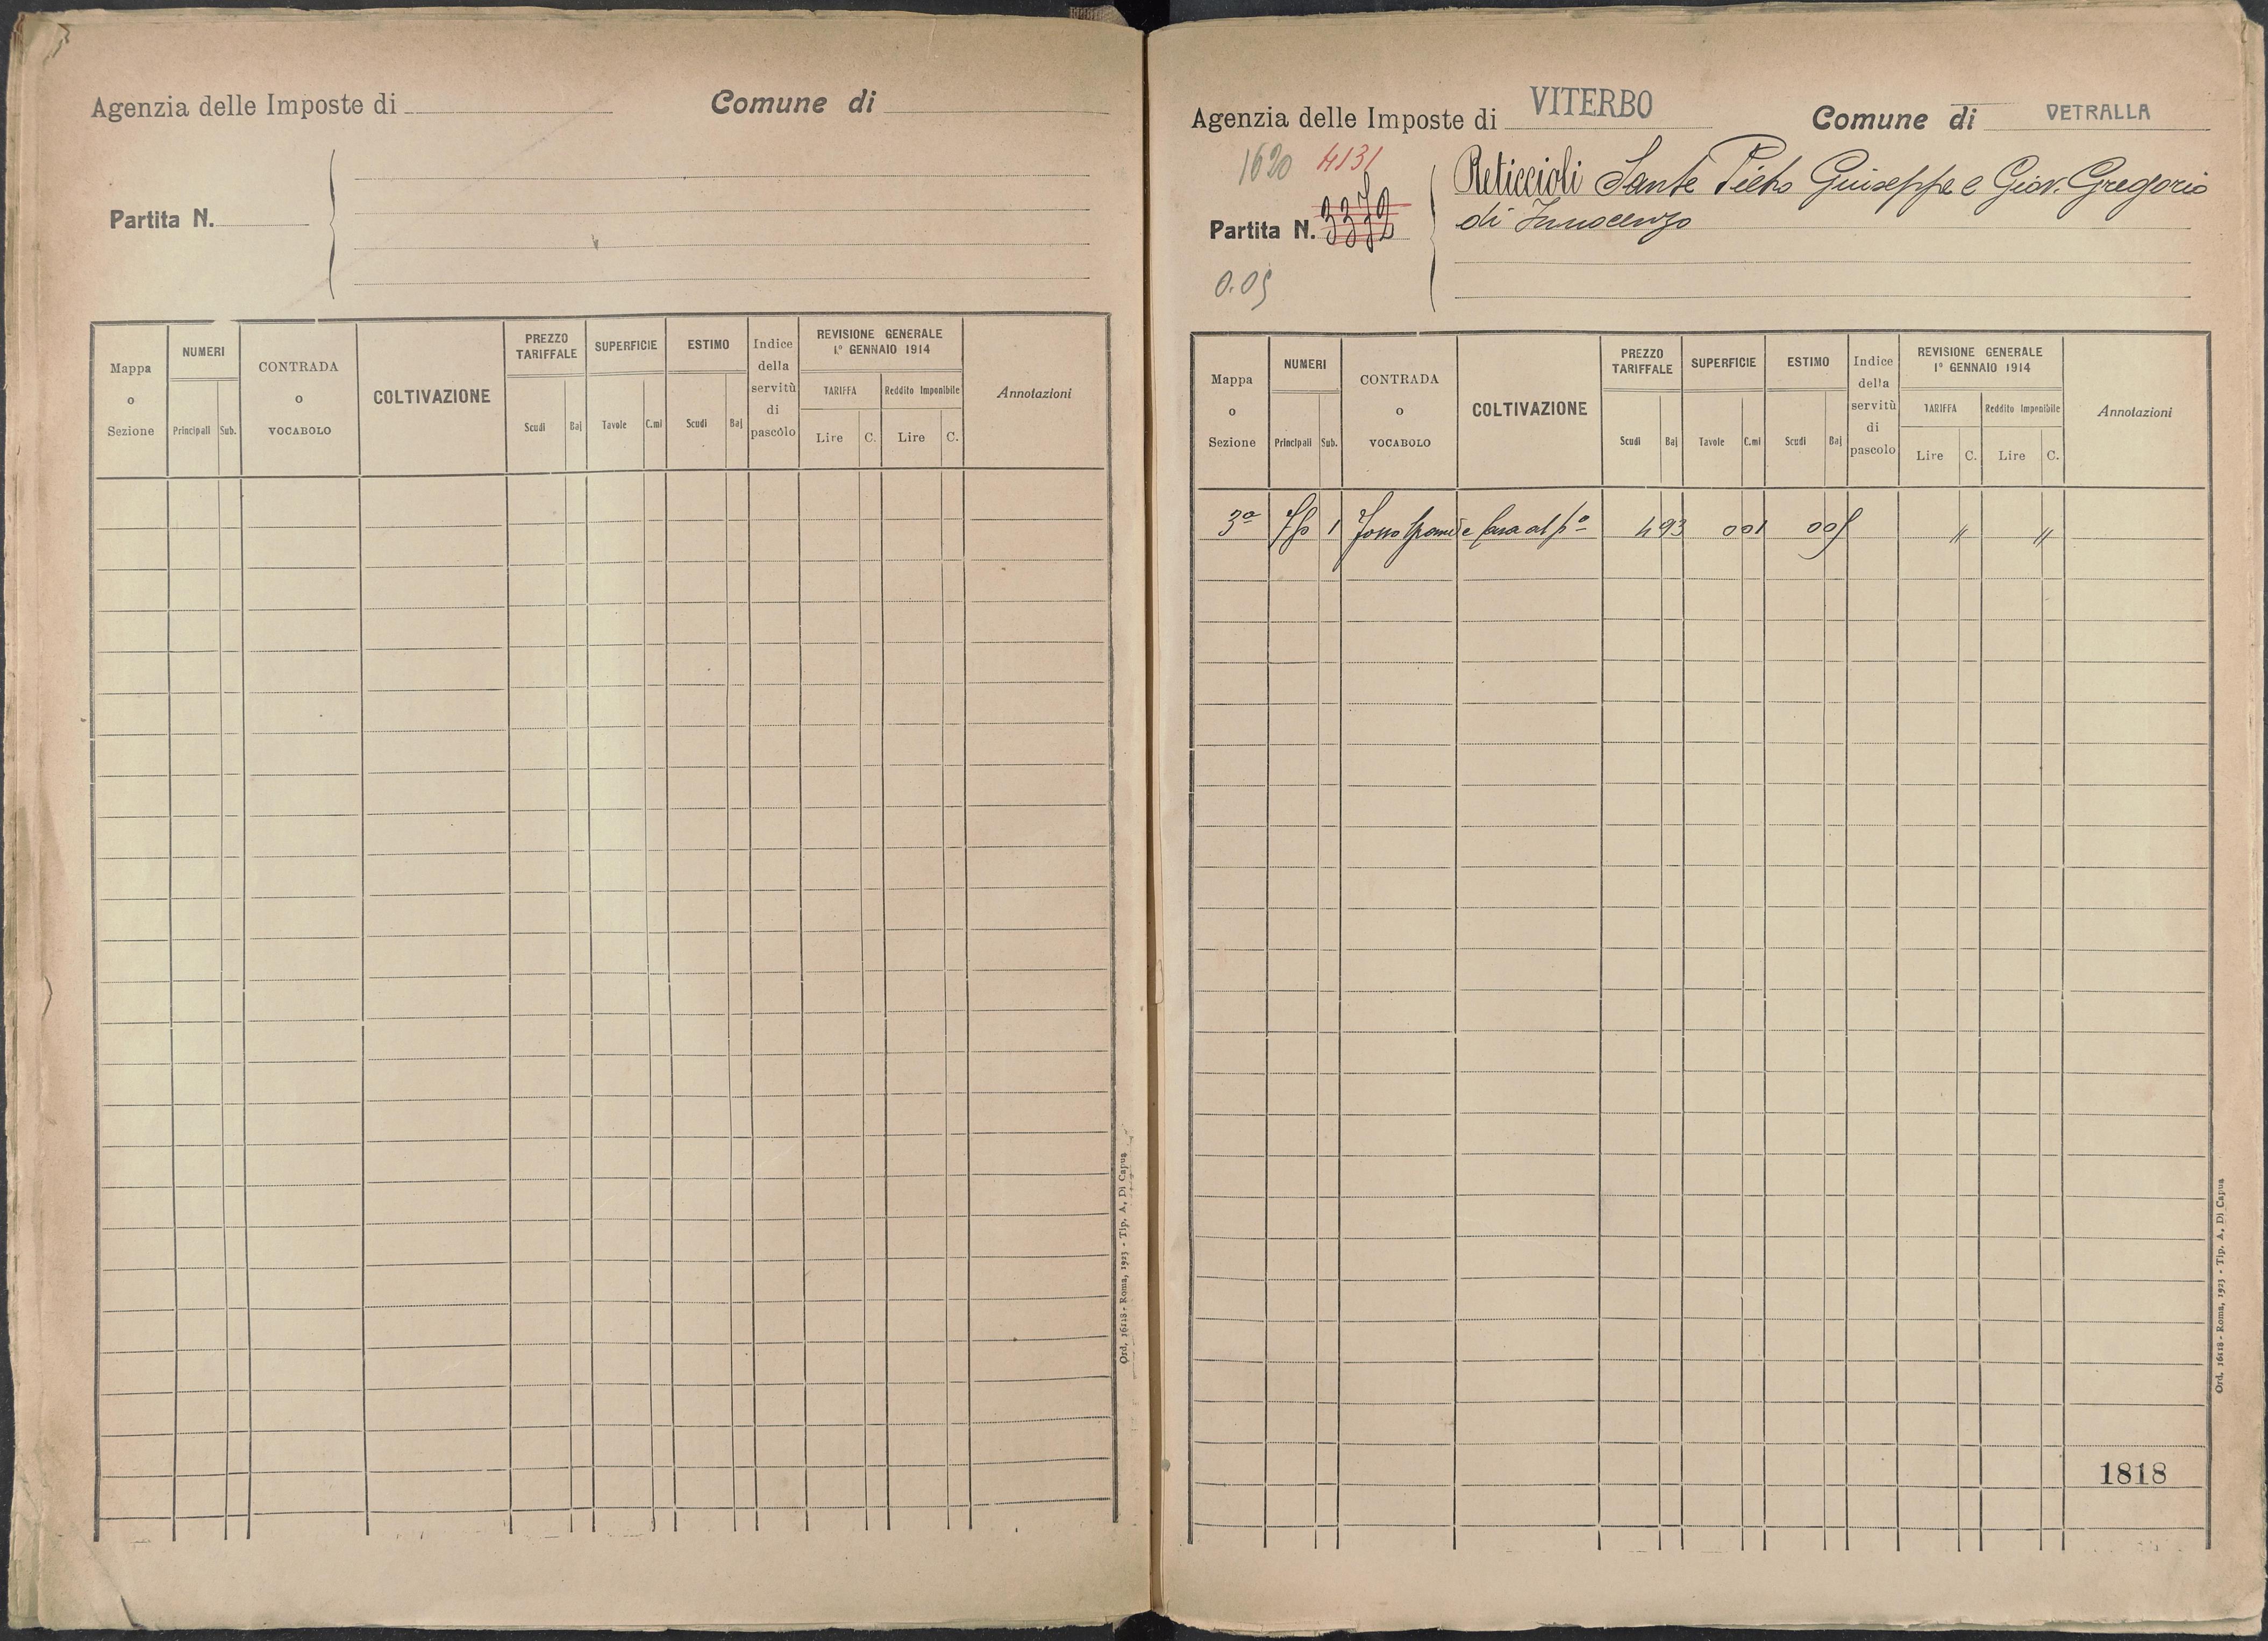 Agenzia delle Imposte di
Comune di
Partita N.
Mappa o Sezione
NUMERI
Principali Sub.
CONTRADA o VOCABOLO
COLTIVAZIONE
PREZZO TARIFFALE
Scudi Baj
SUPERFICIE
Tavole C.mi
ESTIMO
Scudi Baj
Indice della servitù di pascolo
REVISIONE GENERALE
1° GENNAIO 1914
TARIFFA
Lire C.
Reddito Imponibile
Lire C.
Annotazioni
Ord. 16118 - Roma, 1923 - Tip. A. Di Capua
Agenzia delle Imposte di VITERBO
Comune di VETRALLA
1620 4131
Partita N. 3372
0.05
Reticcioli Sante Pietro Giuseppe e Giov. Gregorio
di Innocenzo
Mappa o Sezione
NUMERI
Principali Sub.
CONTRADA o VOCABOLO
COLTIVAZIONE
PREZZO TARIFFALE
Scudi Baj
SUPERFICIE
Tavole C.mi
ESTIMO
Scudi Baj
Indice della servitù di pascolo
REVISIONE GENERALE
1° GENNAIO 1914
TARIFFA
Lire C.
Reddito Imponibile
Lire C.
Annotazioni
3ª 1 Fosso Grande Casa al pº 4 93 0 01 0 05 " "
1818
Ord. 16118 - Roma, 1923 - Tip. A. Di Capua